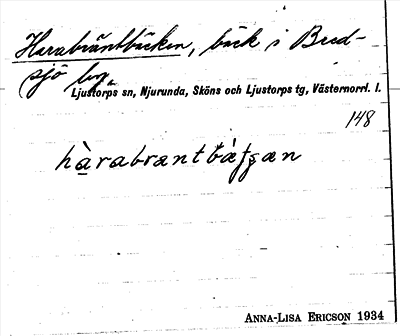 Harabräntbäcken, bäck i Bred-
sjö by,
Ljustorps sn, Njurunda, Sköns och Ljustorps tg, Västernorrl. l.
148
hàrabrantbátʃæn
ANNA-LISA ERICSON 1934